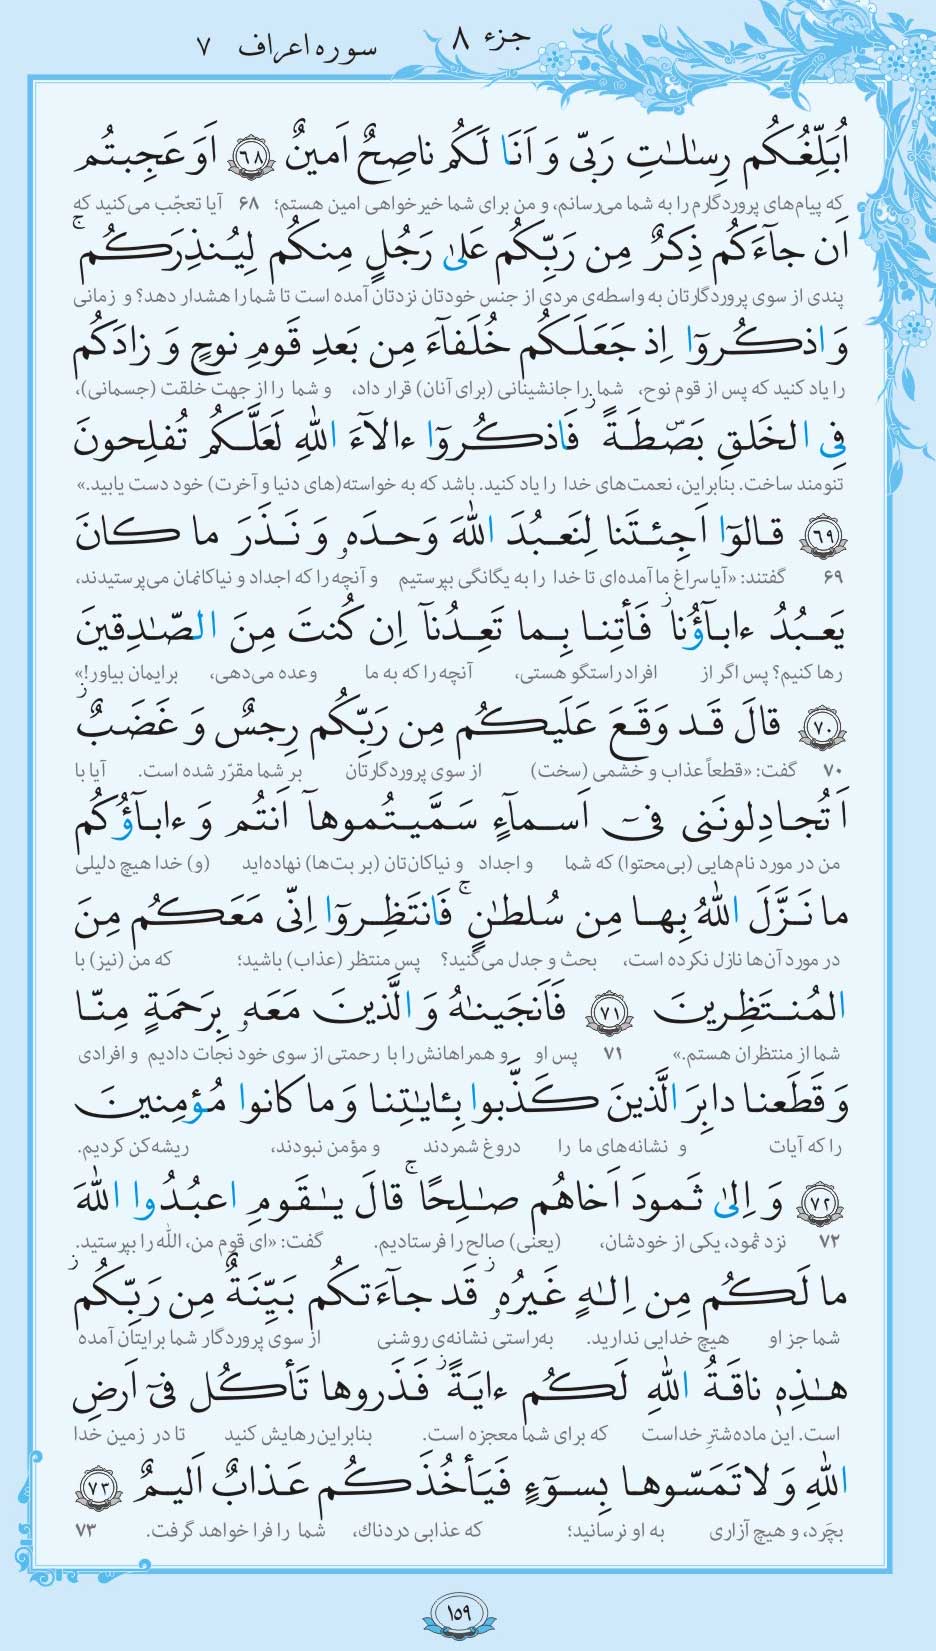 جزء ۸
سوره اعراف ۷
اُبَلِّغُكُم رِسٰلٰتِ رَبّى وَ اَنَا لَكُم ناصِحٌ اَمينٌ ﴿۶۸﴾ اَوَعَجِبتُم
که پیام‌های پروردگارم را به شما می‌رسانم، و من برای شما خیرخواهی امین هستم؛ ۶۸ آیا تعجّب می‌کنید که
اَن جآءَكُم ذِكرٌ مِن رَبِّكُم عَلىٰ رَجُلٍ مِنكُم لِيُنذِرَكُم ۚ
پندی از سوی پروردگارتان به واسطه‌ی مردی از جنس خودتان نزدتان آمده است تا شما را هشدار دهد؟ و زمانی
وَ اذكُروٓا اِذ جَعَلَكُم خُلَفآءَ مِن بَعدِ قَومِ نوحٍ وَ زادَكُم
را یاد کنید که پس از قوم نوح، شما را جانشینانی (برای آنان) قرار داد، و شما را از جهت خلقت (جسمانی)،
فِى الخَلقِ بَصۜطَةً ۖ فَاذكُروٓا ءالآءَ اللهِ لَعَلَّكُم تُفلِحونَ
تنومند ساخت. بنابراین، نعمت‌های خدا را یاد کنید. باشد که به خواسته(های دنیا و آخرت) خود دست یابید.»
﴿۶۹﴾ قالوٓا اَجِئتَنا لِنَعبُدَ اللهَ وَحدَهٗ وَ نَذَرَ ما كانَ
۶۹ گفتند: «آیا سراغ ما آمده‌ای تا خدا را به یگانگی بپرستیم و آنچه را که اجداد و نیاکانمان می‌پرستیدند،
يَعبُدُ ءابآؤُنا ۖ فَأتِنا بِما تَعِدُنآ اِن كُنتَ مِنَ الصّٰدِقينَ
رها کنیم؟ پس اگر از افراد راستگو هستی، آنچه را که به ما وعده می‌دهی، برایمان بیاور!»
﴿۷۰﴾ قالَ قَد وَقَعَ عَلَيكُم مِن رَبِّكُم رِجسٌ وَ غَضَبٌ ۖ
۷۰ گفت: «قطعاً عذاب و خشمی (سخت) از سوی پروردگارتان بر شما مقرّر شده است. آیا با
اَتُجادِلونَنى فىٓ اَسمآءٍ سَمَّيتُموهآ اَنتُم وَ ءابآؤُكُم
من در مورد نام‌هایی (بی‌محتوا) که شما و اجداد و نیاکان‌تان (بر بت‌ها) نهاده‌اید (و) خدا هیچ دلیلی
ما نَزَّلَ اللهُ بِها مِن سُلطٰنٍ ۚ فَانتَظِروٓا اِنّى مَعَكُم مِنَ
در مورد آن‌ها نازل نکرده است، بحث و جدل می‌کنید؟ پس منتظر (عذاب) باشید؛ که من (نیز) با
المُنتَظِرينَ ﴿۷۱﴾ فَاَنجَينٰهُ وَ الَّذينَ مَعَهٗ بِرَحمَةٍ مِنّا
شما از منتظران هستم.» ۷۱ پس او و همراهانش را با رحمتی از سوی خود نجات دادیم و افرادی
وَ قَطَعنا دابِرَ الَّذينَ كَذَّبوا بِـٔايٰتِنا وَ ما كانوا مُؤمِنينَ
را که آیات و نشانه‌های ما را دروغ شمردند و مؤمن نبودند، ریشه‌کن کردیم.
﴿۷۲﴾ وَ اِلىٰ ثَمودَ اَخاهُم صٰلِحًا ۚ قالَ يٰقَومِ اعبُدُوا اللهَ
۷۲ نزد ثمود، یکی از خودشان، (یعنی) صالح را فرستادیم. گفت: «ای قوم من، الله را بپرستید.
ما لَكُم مِن اِلٰهٍ غَيرُهٗ ۖ قَد جآءَتكُم بَيِّنَةٌ مِن رَبِّكُم ۖ
شما جز او هیچ خدایی ندارید. به‌راستی نشانه‌ی روشنی از سوی پروردگار شما برایتان آمده
هٰذِهٖ ناقَةُ اللهِ لَكُم ءايَةً ۖ فَذَروها تَأكُل فىٓ اَرضِ
است. این ماده‌شترِ خداست که برای شما معجزه است. بنابراین رهایش کنید تا در زمین خدا
اللهِ وَ لا تَمَسّوها بِسوٓءٍ فَيَأخُذَكُم عَذابٌ اَليمٌ ﴿۷۳﴾
بچَرد، و هیچ آزاری به او نرسانید؛ که عذابی دردناك، شما را فرا خواهد گرفت. ۷۳
۱۵۹